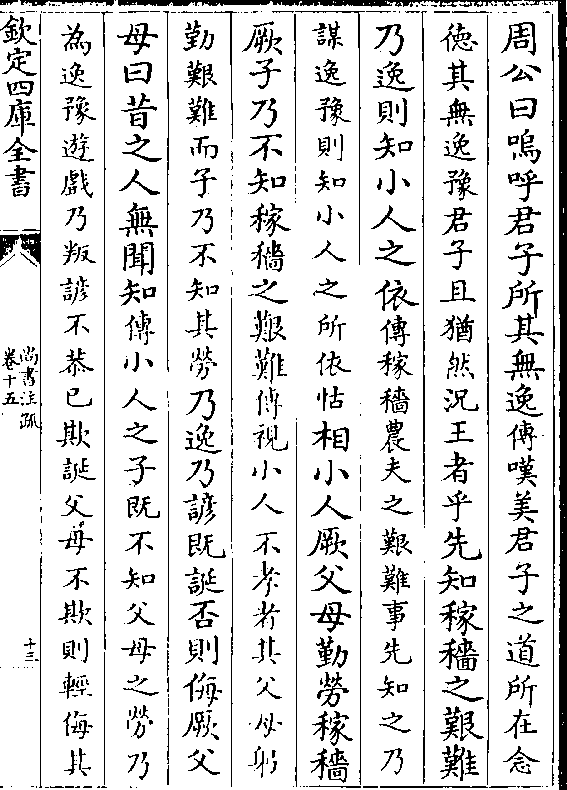 周公曰嗚呼君子所其無逸傳嘆美君子之道所在念
德其無逸豫君子且猶然況王者乎先知稼穡之艱難
乃逸則知小人之依傳稼穡農夫之艱難事先知之乃
謀逸豫則知小人之所依怙相小人厥父母勤勞稼穡
厥子乃不知稼穡之艱難傳視小人不孝者其父母躬
勤艱難而子乃不知其勞乃逸乃諺既誕否則侮厥父
母曰昔之人無聞知傳小人之子既不知父母之勞乃
為逸豫遊戲乃叛諺不恭已欺誕父母不欺則輕侮其
欽定四庫全書
尚書注疏
卷十五
十三